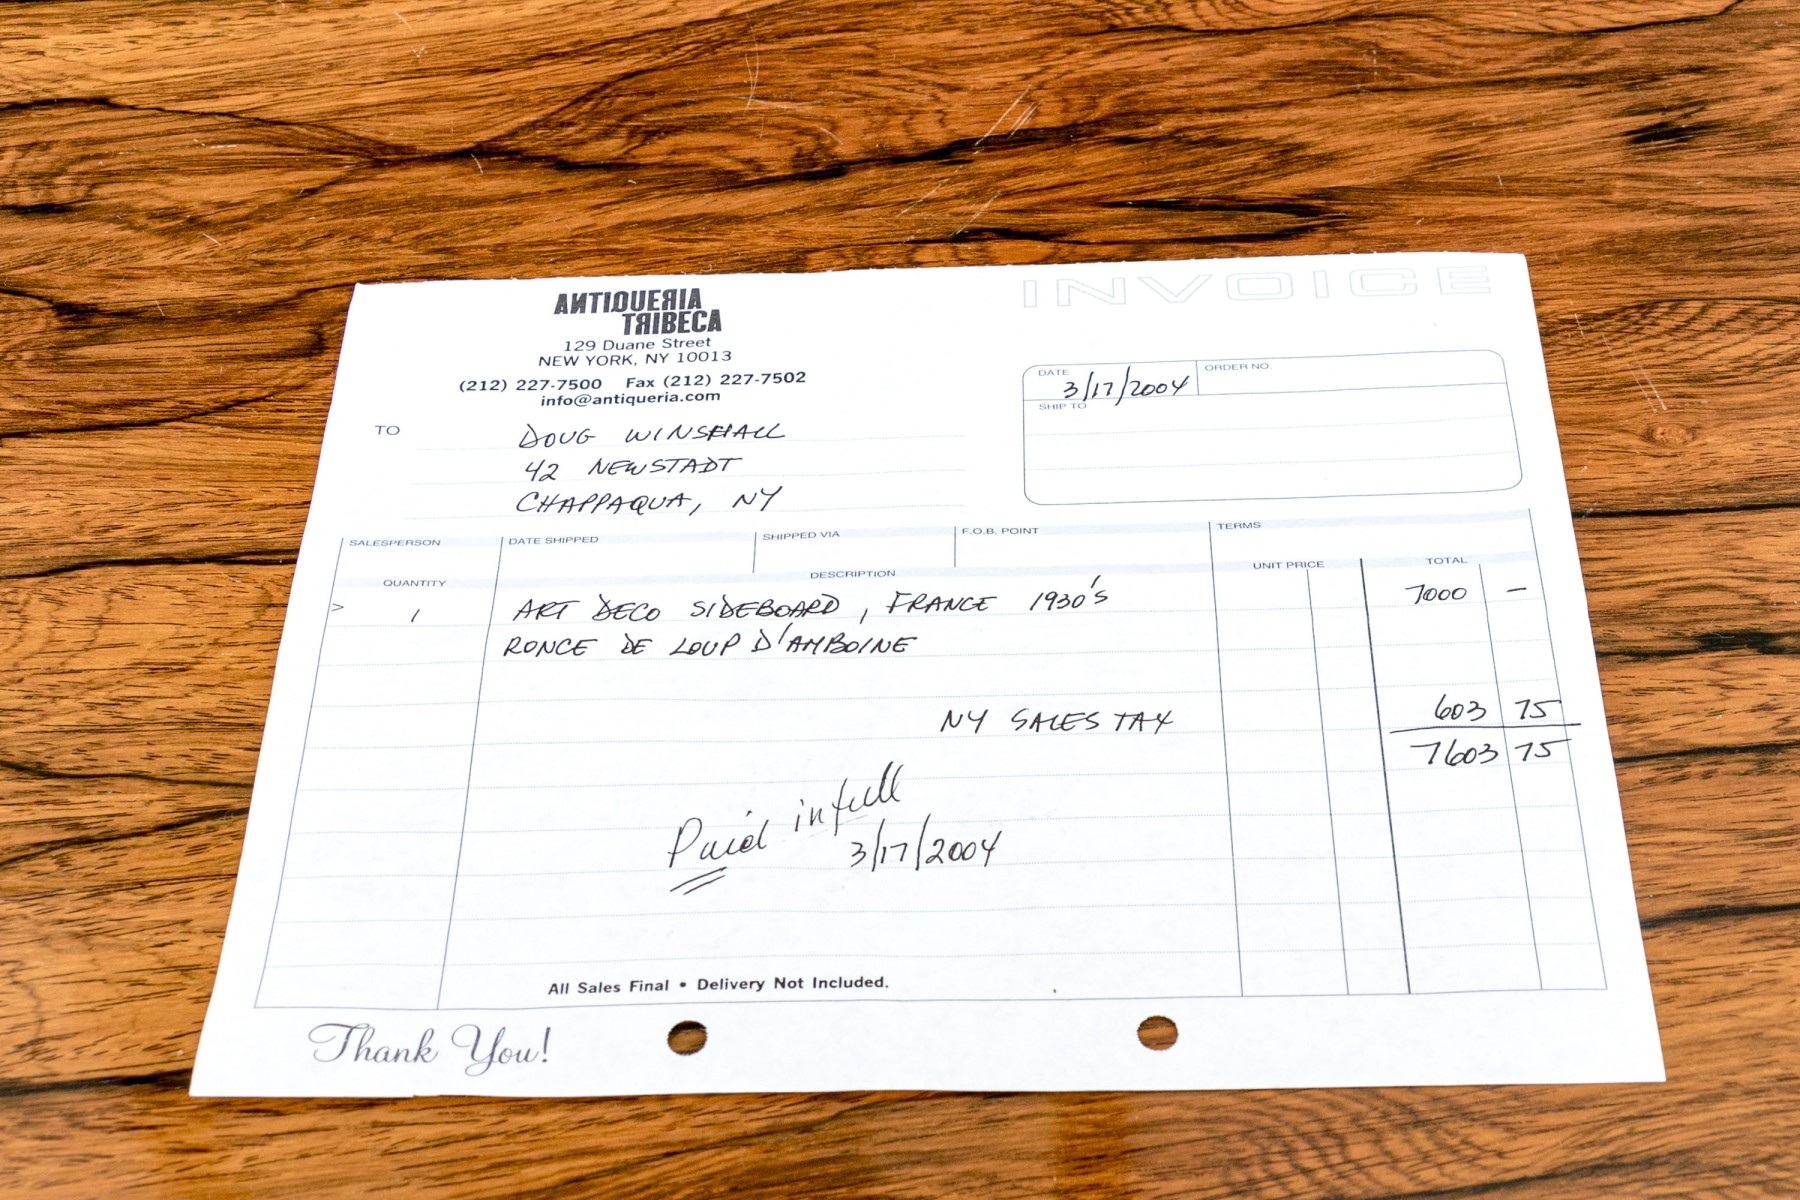 INVOICE
ANTIQUERIA
TRIBECA
129 Duane Street
NEW YORK, NY 10013
(212) 227-7500 Fax (212) 227-7502
info@antiqueria.com
DATE 3/17/2004 ORDER NO.
SHIP TO
TO DOUG WINSHALL
42 NEWSTADT
CHAPPAQUA, NY
SALESPERSON DATE SHIPPED SHIPPED VIA F.O.B. POINT TERMS
QUANTITY DESCRIPTION UNIT PRICE TOTAL
> 1 ART DECO SIDEBOARD, FRANCE 1930'S 7000 -
RONCE DE LOUP D'AMBOINE
NY SALES TAX 603 75
7603 75
Paid in full
3/17/2004
All Sales Final • Delivery Not Included.
Thank You!